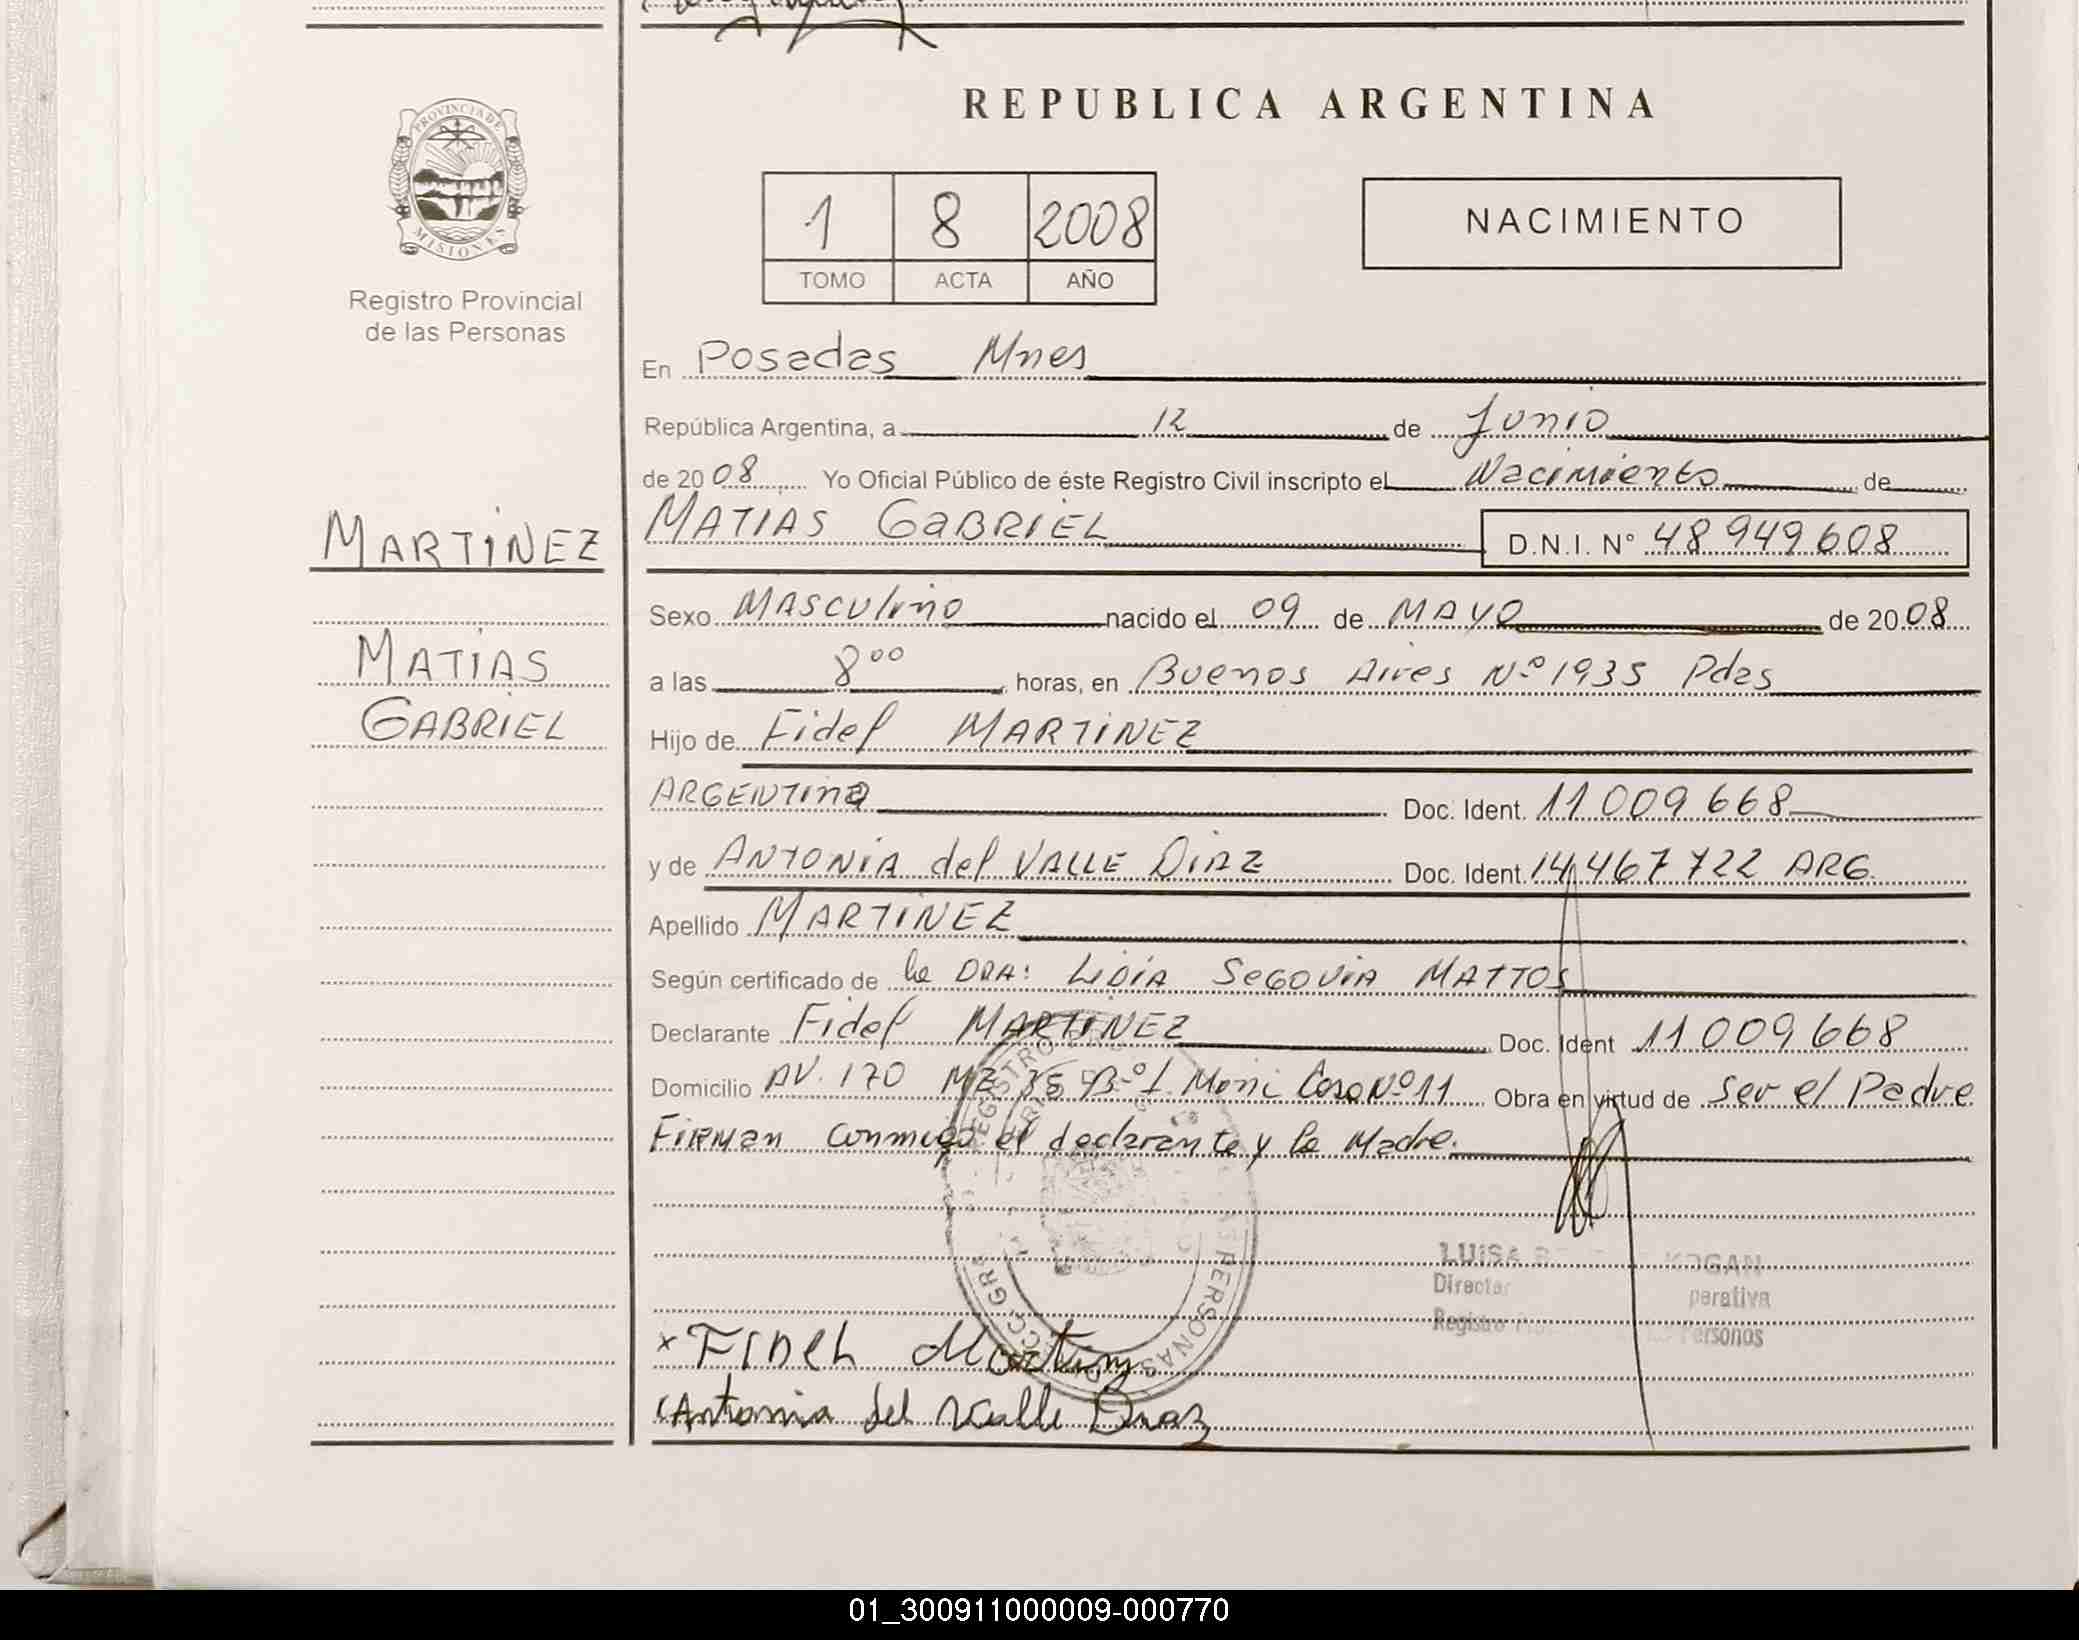 REPUBLICA ARGENTINA
PROVINCIA DE
MISIONES
Registro Provincial
de las Personas
1 8 2008
TOMO ACTA AÑO
NACIMIENTO
MARTINEZ
MATIAS
GABRIEL
En Posadas Mnes
República Argentina, a 12 de Junio
de 2008 Yo Oficial Público de éste Registro Civil inscripto el Nacimiento de
MATIAS GABRIEL D.N.I. N° 48 949 608
Sexo MASCUlino nacido el 09 de MAYO de 2008
a las 8⁰⁰ horas, en Buenos Aires Nº 1935 Pdas
Hijo de Fidel MARTINEZ
ARGENTINO Doc. Ident. 11 009 668
y de ANTONIA del VALLE DIAZ Doc. Ident. 14 467 722 ARG.
Apellido MARTINEZ
Según certificado de la DRA: LIDIA SEGOVIA MATTOS
Declarante Fidel MARTINEZ Doc. Ident 11 009 668
Domicilio AV. 170 MZ 35 Bº Moni Casa Nº 11 Obra en virtud de Ser el Padre
Firman conmigo el declarante y la Madre.
LUISA KOGAN
Director perativa
Registro Personas
x FIDEL Martinez
Antonia del Valle Diaz
REGISTRO PERSONAS
01_300911000009-000770